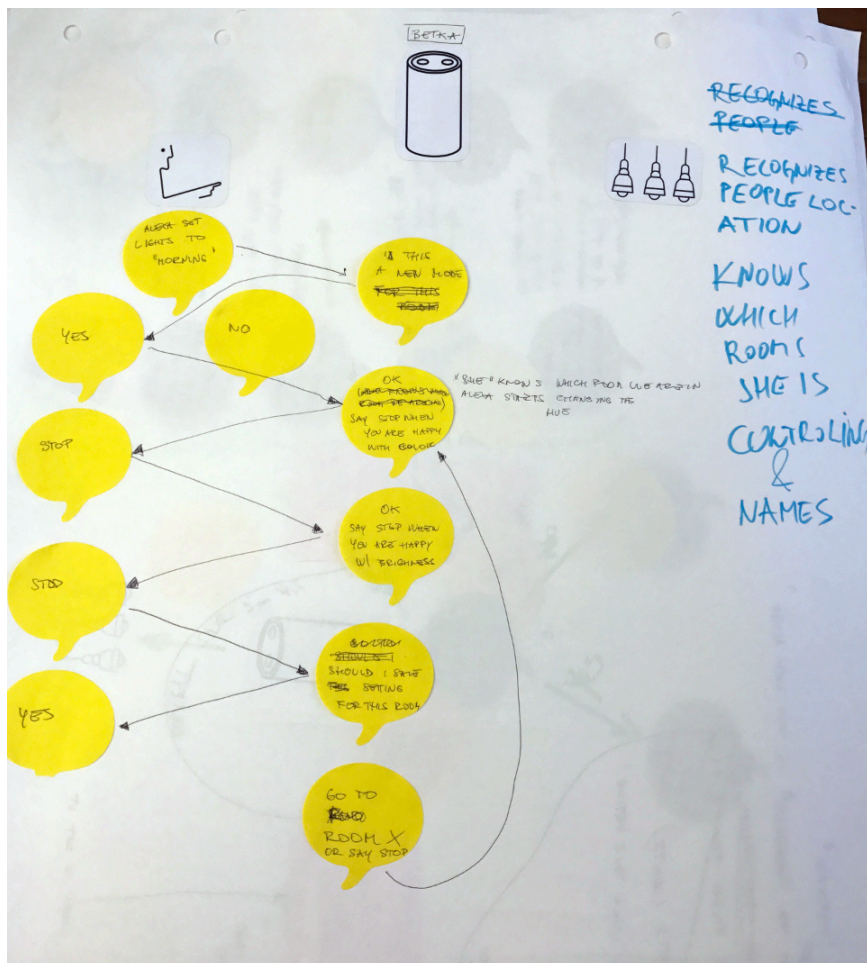 BETKA
RECOGNIZES
PEOPLE
RECOGNIZES
PEOPLE LOC-
ATION
KNOWS
WHICH
ROOMS
SHE IS
CONTROLING
&
NAMES
ALEXA SET
LIGHTS TO
"MORNING"
THIS
A NEW MODE
FOR THIS
ROOM
YES
NO
OK
SAY STOP WHEN
YOU ARE HAPPY
WITH COLOR
"SHE" KNOWS WHICH ROOM WE ARE IN
ALEXA STARTS CHANGING THE
HUE
STOP
OK
SAY STOP WHEN
YOU ARE HAPPY
W/ BRIGHNESS
STOP
SHOULD I
SHOULD I SAVE
SETTING
FOR THIS ROOM
YES
GO TO
ROOM X
OR SAY STOP